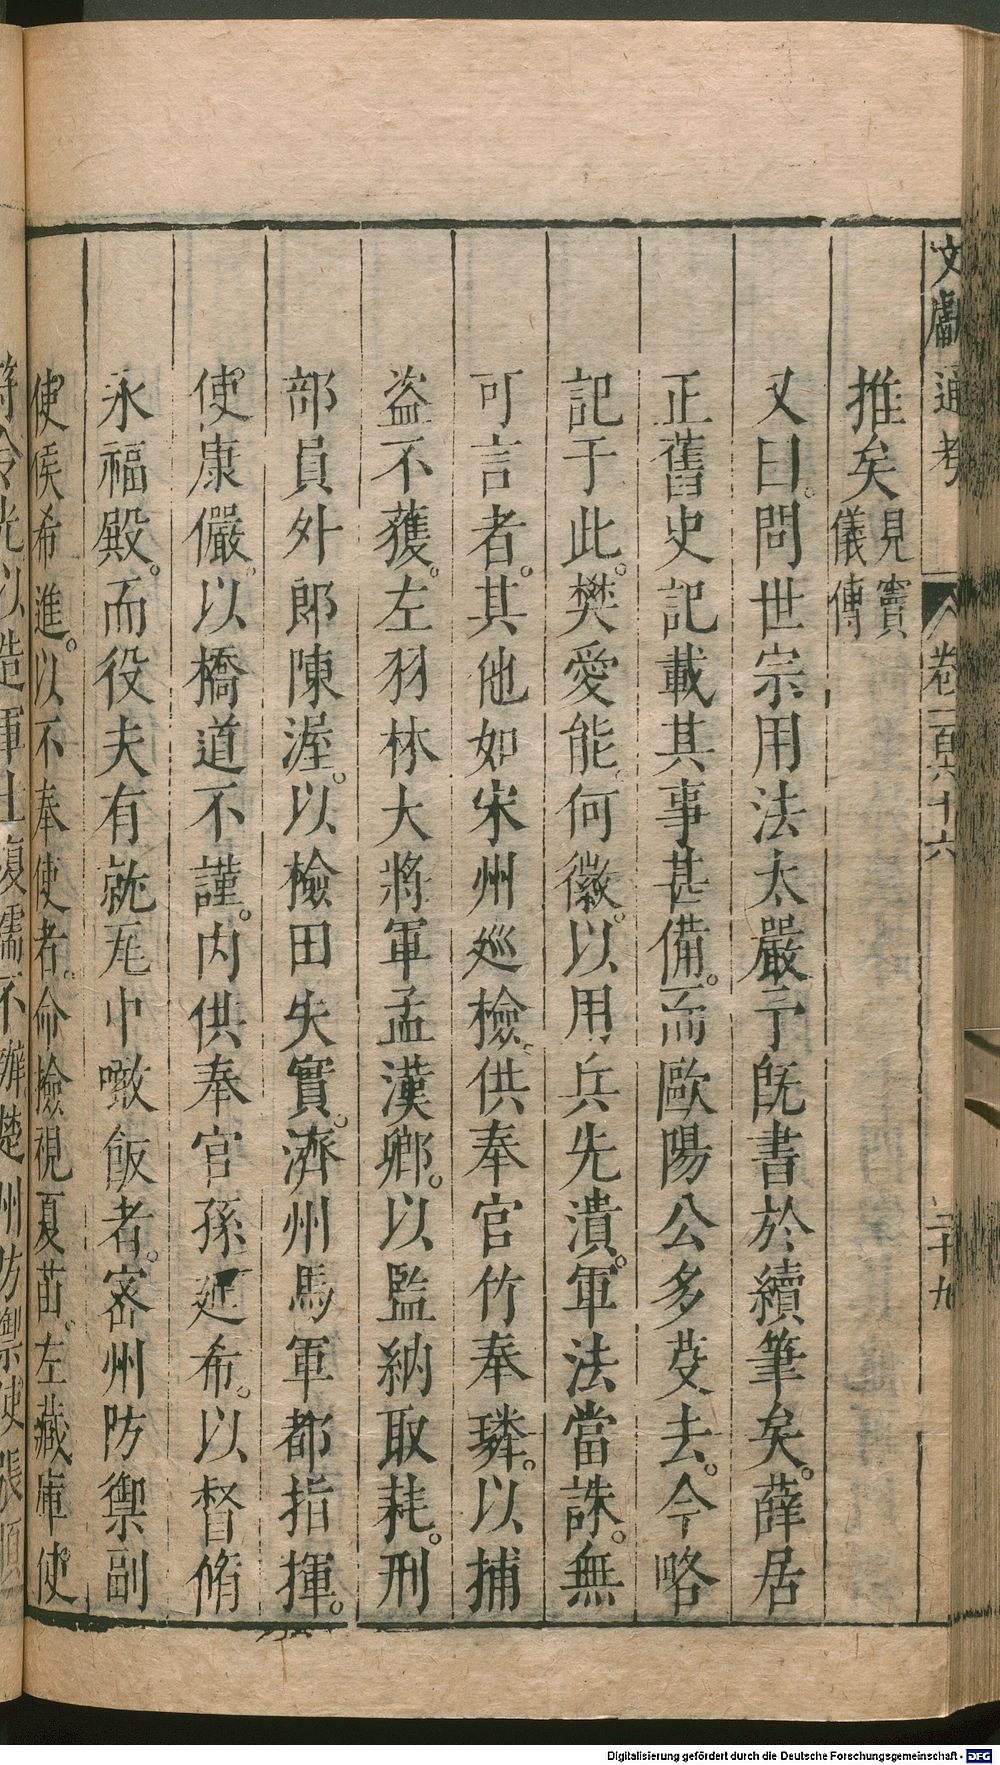 文獻通考 卷一百六十六 二十九
推矣見竇儀傳
又曰。問世宗用法太嚴予旣書於續筆矣。薛居
正舊史記載其事甚備。而歐陽公多芟去。今略
記于此。樊愛能。何徽。以用兵先潰。軍法當誅。無
可言者。其他如宋州巡檢。供奉官竹奉璘。以捕
盗不獲。左羽林大將軍孟漢卿。以監納取耗。刑
部員外郎陳渥。以檢田失實。濟州馬軍都指揮。
使康儼。以橋道不謹。内供奉官孫延希。以督脩
永福殿。而役夫有就瓦中噉飯者。密州防禦副
使侯希進。以不奉使者。命檢視夏苗。左藏庫使
符令光以造軍士複襦不辦楚州防禦使張
Digitalisierung gefördert durch die Deutsche Forschungsgemeinschaft - DFG